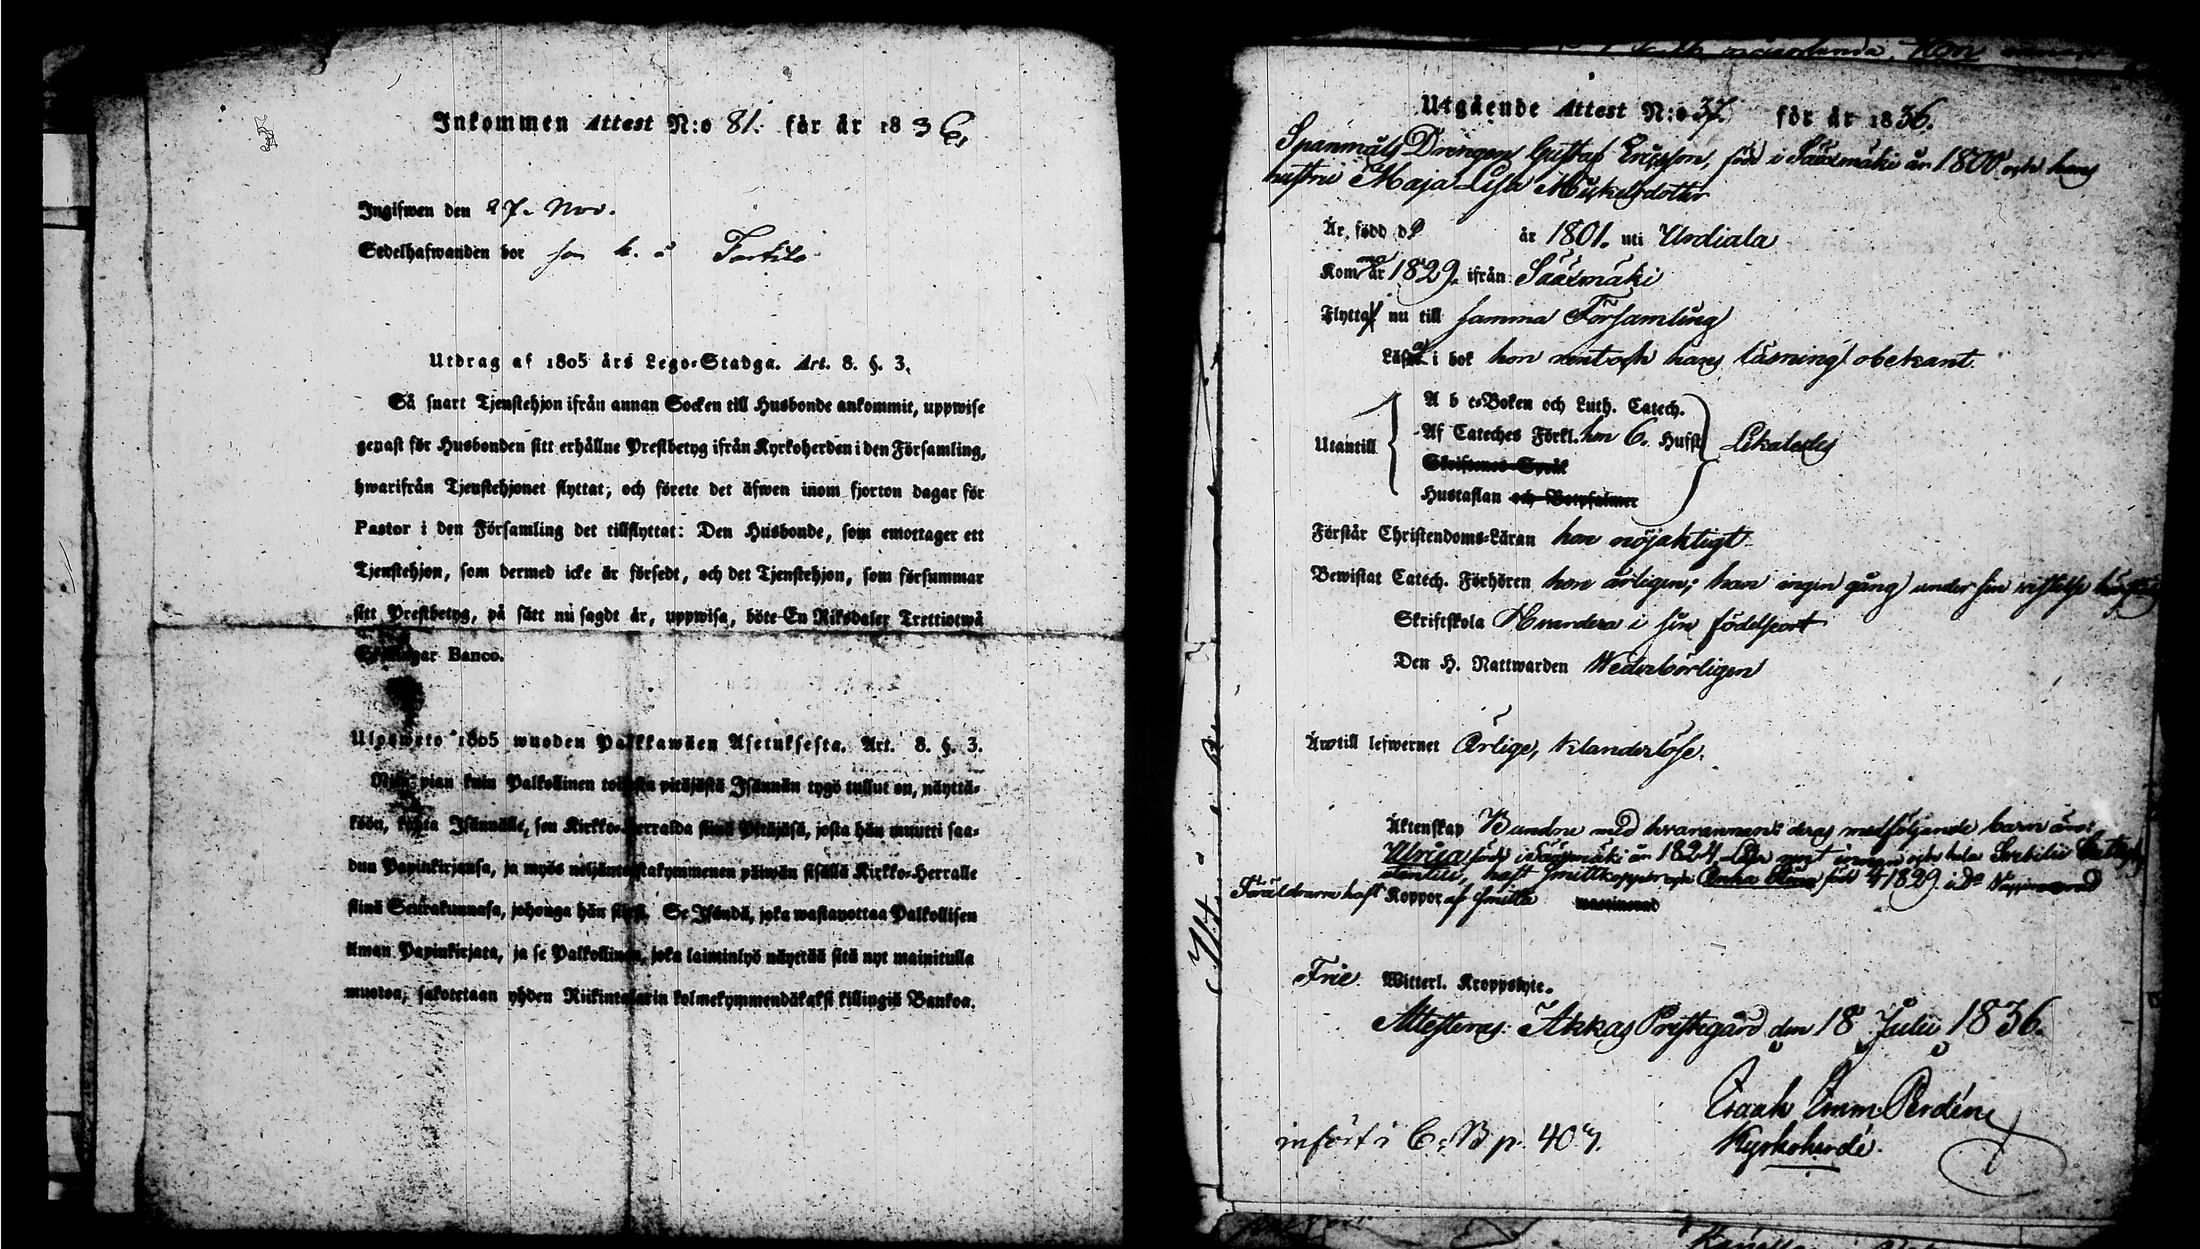 Inkommen Attest N:o 81. för år 1836.
Ingifwen den 27. Nov.
Sedelhafwanden bor
Utdrag af 1805 års Lego-Stadga. Art. 8. §. 3.
Så snart Tjenstehjon ifrån annan Socken till Husbonde ankommit, uppwise
genast för Husbonden sitt erhållne Prestbetyg ifrån Kyrkoherden i den Församling,
hwarifrån Tjenstehjonet flyttat, och förete det äfwen inom fjorton dagar för
Pastor i den Församling det tillflyttat: Den Husbonde, som emottager ett
Tjenstehjon, som dermed icke är försedt, och det Tjenstehjon, som försummar
sitt Prestbetyg, på sätt nu sagdt är, uppwisa, böte En Riksdaler Trettiotwå
Skillingar Banco.
Ulosweto 1805 wuoden Palkkawäen Asetuksesta. Art. 8. §. 3.
Niin pian kuin Palkollinen toisesta pitäjästä Isännän tygö tullut on, näyttä-
köön, kohta Isännälle, sen Kirkko-Herralda siinä Pitäjäsä, josta hän muutti saa-
dun Papinkirjansa, ja myös neljäntoistakymmenen päiwän sisällä Kirkko-Herralle
siinä Seurakunnasa, johonga hän siirsi. Se Isändä, joka wastanottaa Palkollisen
ilman Papinkirjata, ja se Palkollinen, joka laiminlyö näyttää sitä nyt mainitulla
muotoa, sakotetaan yhden Riikintalarin kolmekymmendäkaksi killingiä Bankoa.
Utgående Attest N:o 37. för år 1836.
Spanmåls Drengen Gustaf Ericsson, född i Sääxmäki år 1800 och hans
hustru Maja Lisa Mickelsdotter
Är född d. år 1801. uti Urdiala
Komma år 1829. ifrån Sääxmäki
Flytta nu till samma Församling
Läsa i bok hon rent och hans läsning obekant.
Utantill
A b c-Boken och Luth. Catech.
Af Cateches Förkl. hon 6. Hufst
Skriftenes Språk
Hustaflan och Botpsalmer
Likaledes
Förstår Christendoms-Läran hon nöjaktigt.
Bewistat Catech. Förhören hon årligen; han ingen gång under sin wistelse
Skriftskola Hvardera i sin födelseort
Den H. Nattwarden Wederbörligen
Äro till lefwernet Ärlige, klanderlöse.
Äktenskap Bundne med hvarannan: deras medföljande barn äro:
Ulrica född i Sääxmäki år 1824
haft smittkoppor och Anna Stina född 1829 i d:o
Föräldrarne haft Koppor af smitta
Frie Witterl. Kroppslyte.
Attesteras: Akkas Prestegård den 18 Julii 1836.
Isaak Emm. Perdén
Kyrkoherde.
infört i C. B p. 407.